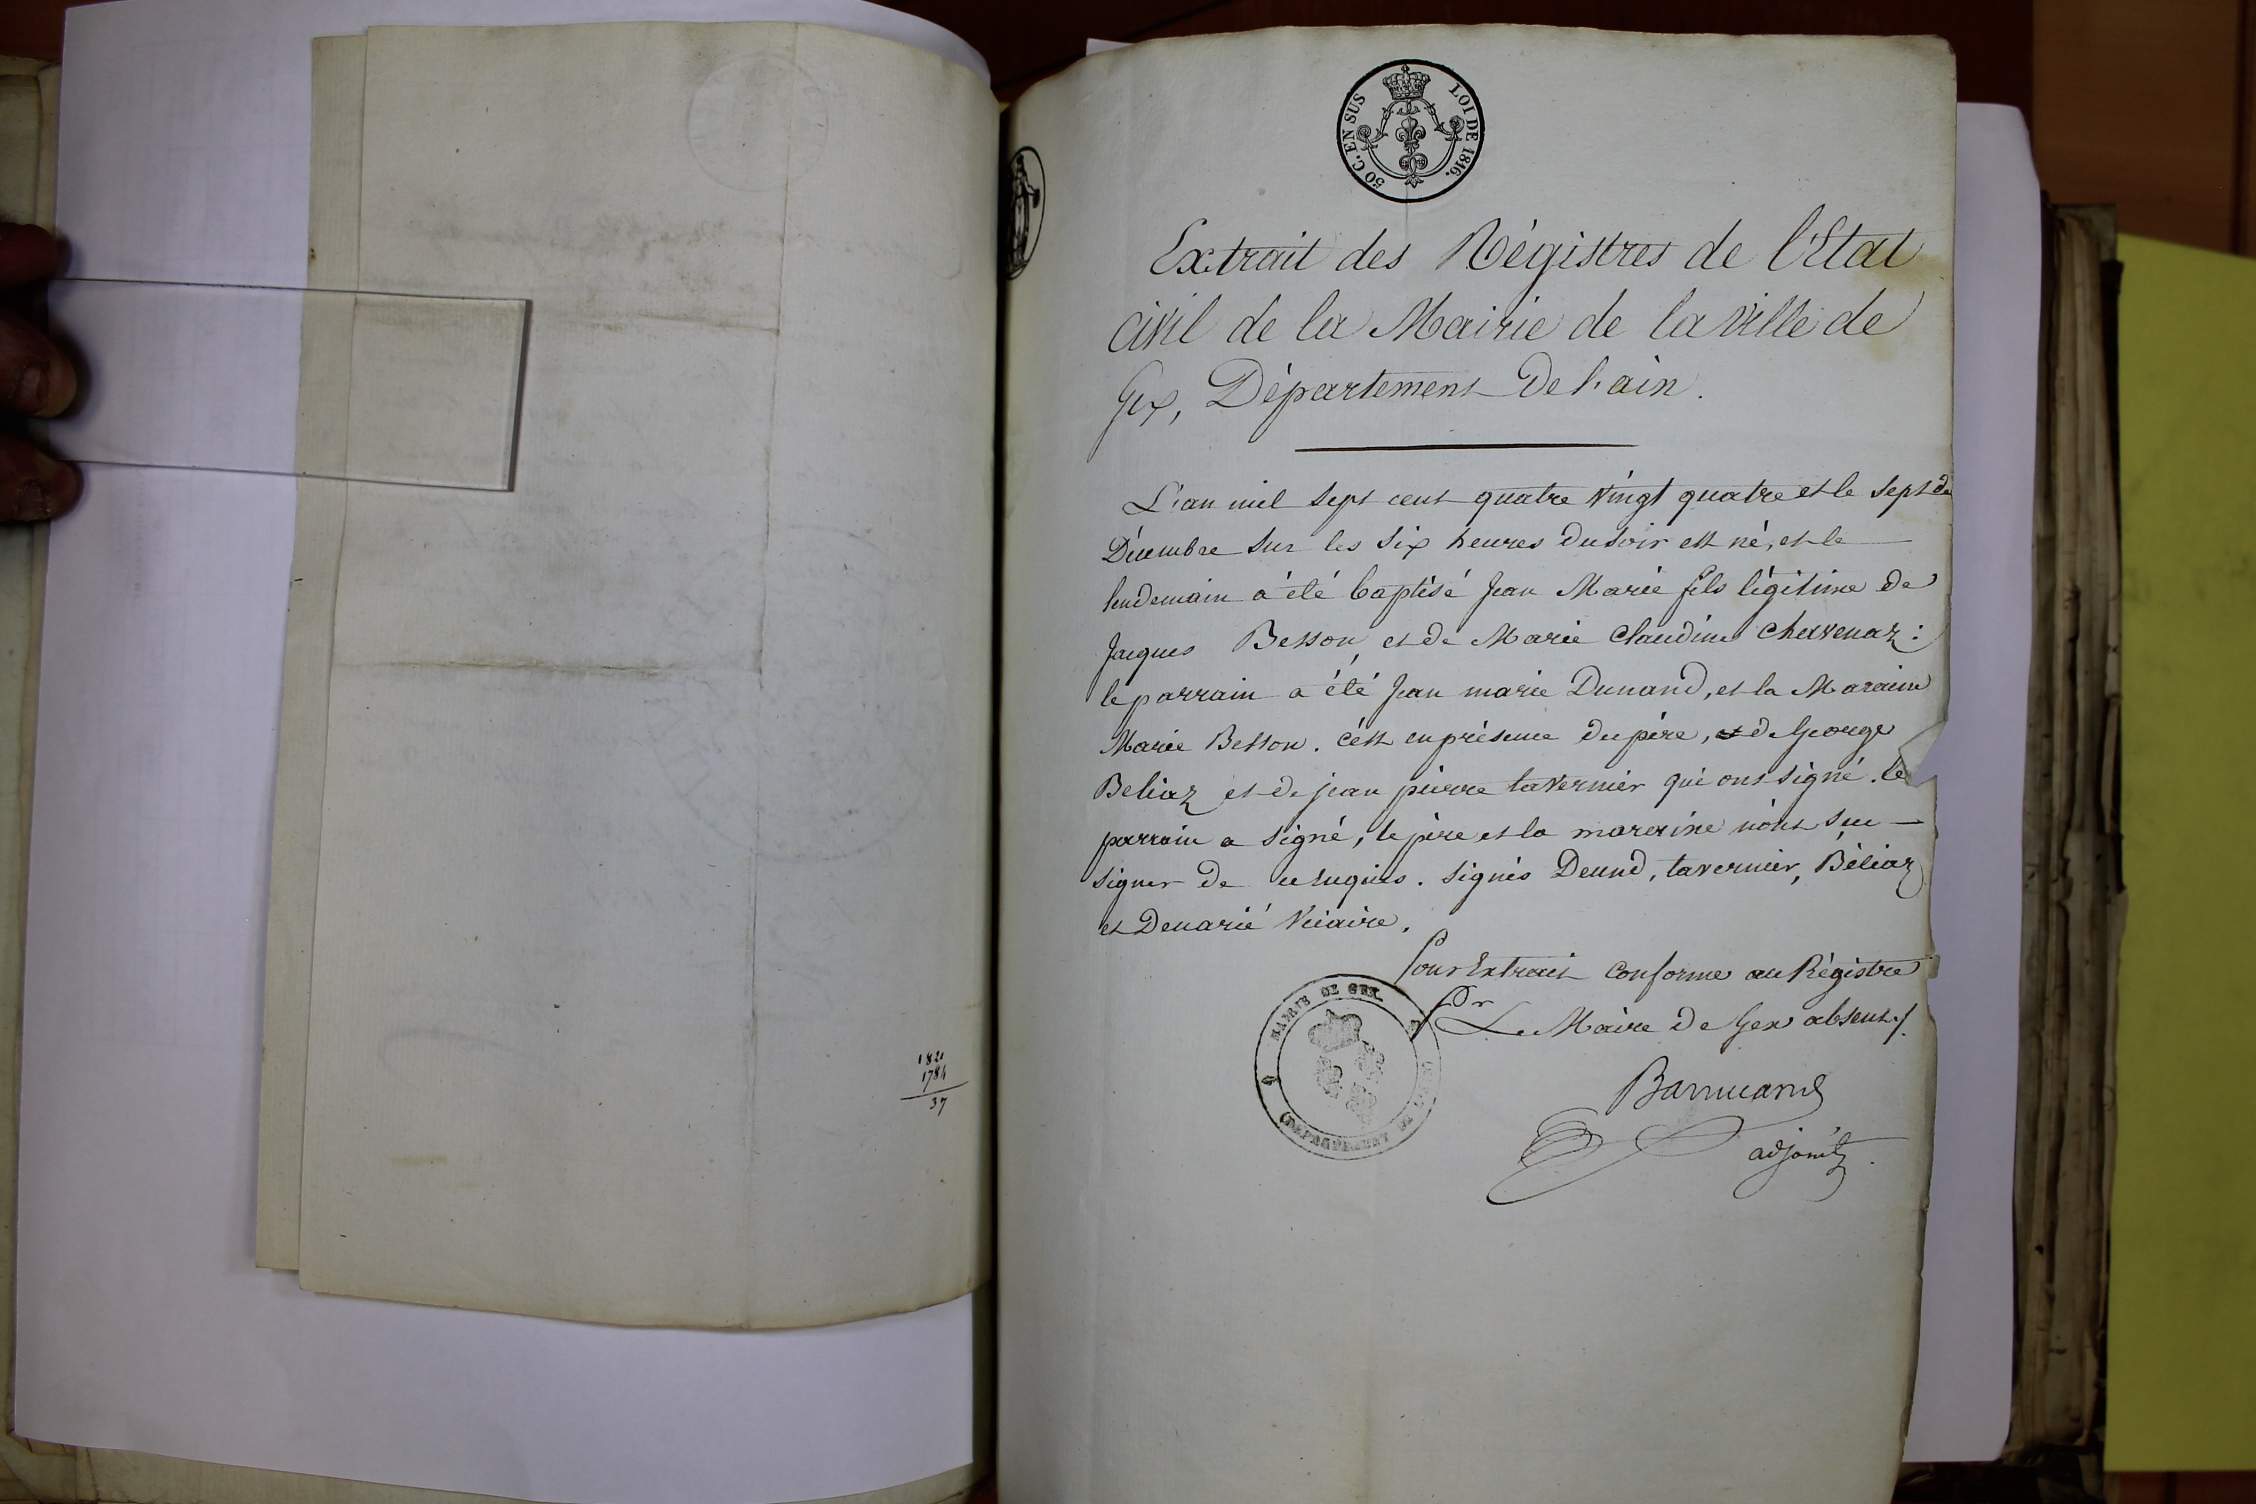 1821
1784
37
50 C. EN SUS LOI DE 1816.
Extrait des Régistres de l'Etat
Civil de la Mairie de la ville de
Gex, Département De l'ain.
L'an mil sept cent quatre vingt quatre et le sept de
Décembre sur les six heures du soir est né, et le
lendemain a été baptisé Jean Marie fils légitime de
Jacques Besson et de Marie Claudine Chavenaz :
le parrain a été Jean marie Dunand, et la Maraine
Marie Besson. c'est en présence du père, et de George
Beliaz et de jean pierre tavernier qui ont signé. le
parrain a signé, le père et la maraine n'ont sçu
signer de ce enquis. signés Dunnd, tavernier, Béliaz
et Denarié Viciaire.
Pour Extrait Conforme au Régistre
Pr Le Maire de Gex absent./.
MAIRIE DE GEX.
DÉPARTEMENT DE
adjoint